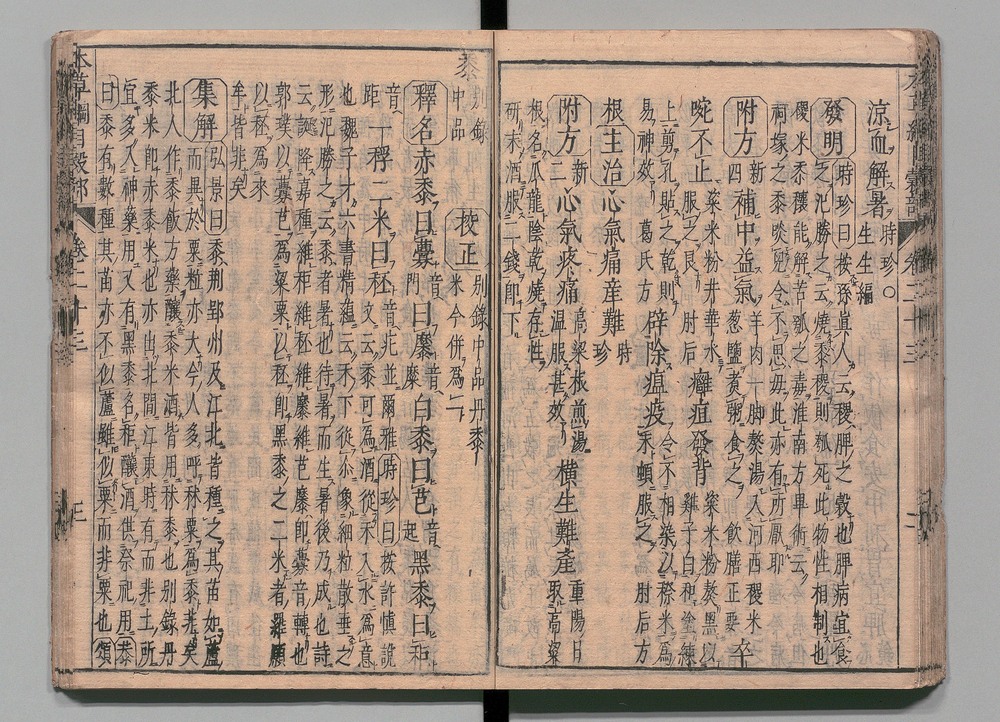 涼血解暑 時珍○生生編
發明 時珍曰按孫眞人云稷脾之穀也脾病宜食
之氾勝之云燒黍稷則瓠死此物性相制也
稷米黍穰能解苦瓠之毒淮南方畢術云
祠冢之黍啖兒令不思毋此亦有所厭耶
附方 新四 補中益氣 羊肉一脚熬湯入河西稷米葱鹽煮粥食之 飲膳正要 卒
啘不止 粢米粉井華水服之良 肘后 癰疽發背 粢米粉熬黑以雞子白和塗練
上剪孔貼之乾則易神效 葛氏方 辟除瘟疫 令不相染以穄米爲末頓服之 肘后方
根主治心氣痛産難 時珍
附方 新二 心氣疼痛 高粱根煎湯温服甚效 橫生難産 重陽日取高粱
根名瓜龍陰乾燒存性研末酒服二錢即下
黍 別錄中品 校正 別錄中品丹黍米今併爲一
釋名 赤黍曰虋 音門 曰穈 音糜 白黍曰芑 音起 黑黍曰秬
音距 一稃二米曰秠 音疕並爾雅 時珍曰按許愼說文云黍可爲酒從禾入水爲意
也魏子才六書精蘊云禾下從氽象細粒散垂之
形氾勝之云黍者暑也待暑而生暑後乃成也詩
云誕降嘉種維秬維秠維穈維芑穈即虋音轉也
郭璞以虋芑爲粱粟以秬即黑黍之二米者羅願
以秠爲來牟皆非矣
集解 弘景曰黍荊郢州及江北皆種之其苗如蘆
而異於粟粒亦大今人多呼秫粟爲黍非矣
北人作黍飯方藥釀黍米酒皆用秫黍也別錄丹
黍米即赤黍米也亦出北間江東時有而非土所
宜多入神藥用又有黑黍名秬釀酒供祭祀用恭
曰黍有數種其苗亦不似蘆雖似粟而非粟也頌
本草綱目穀部 卷二十三